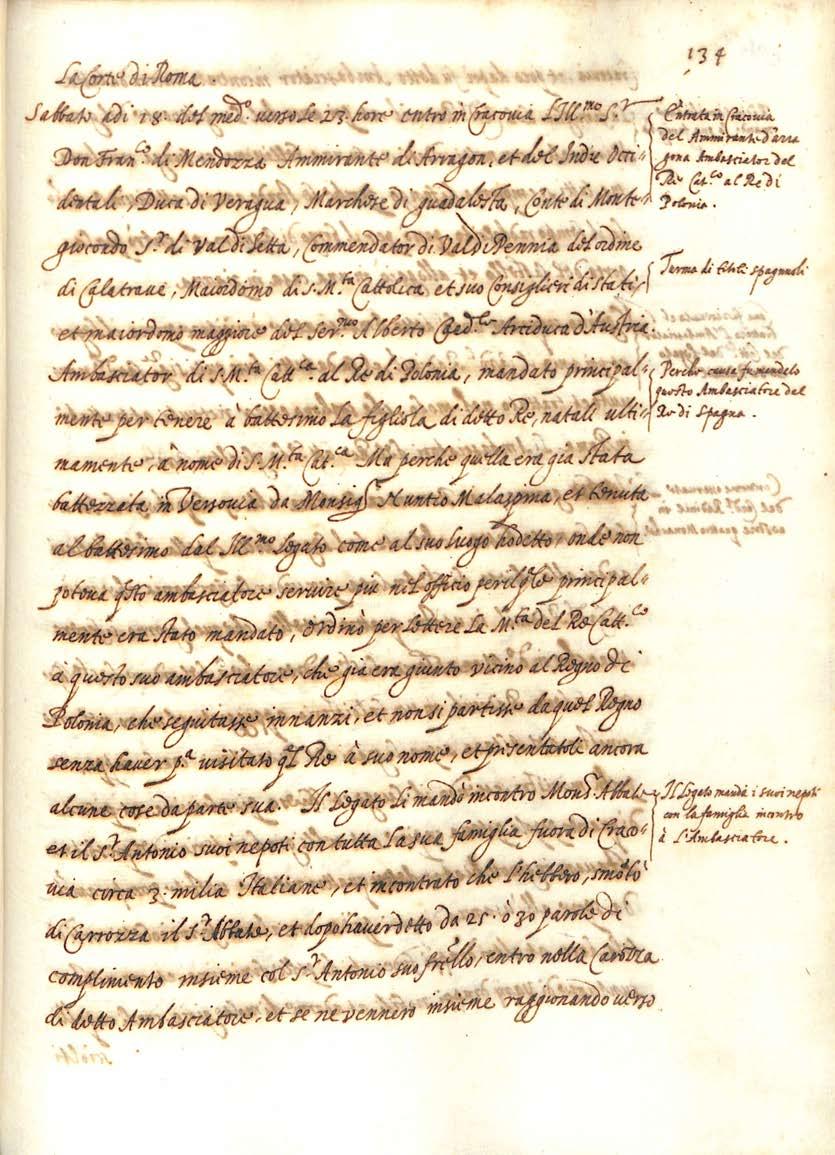 134
La Corte di Roma.
Sabbato adi 18. del med.º verso le 23. hore entro in Cracovia l'Ill.mo S.r
Don Fran.co di Mendozza Ammirante di Arragon, et del Indie Occi=
dentali, Duca di Veragua, Marchese di guadalesta, Conte di Monte=
giocondo S.r di Val di Setta, Commendator di Val di Pennia del ordine
di Calatrava, Maiordomo di S. M.ta Cattolica et suo Consiglieri di Stati,
et maiordomo maggiore del Ser.mo Alberto Card.le Arciduca d'Austria.
Ambasciator di S. M.ta Catt.ca al Re di Polonia, mandato principal=
mente per tenere à battesimo la figliola di detto Re, natali ulti=
mamente, à nome di S. M.ta Cat.ca Ma perche quella era gia stata
battezzata in Versovia da Monsig.r Nuntio Malaspina, et tenuta
al battesimo dal Ill.mo Legato come al suo luogo hò detto, onde non
potova q.sto ambasciatore servire più nel officio per il q.le principal=
mente era stato mandato, ordinò per lettere la M.ta del Re Catt.co
à questo suo ambasciatore, che gia era giunto vicino al Regno di
Polonia, che seguitasse innanzi, et non si partisse da quel Regno
senza haver p.a visitato q.l Re à suo nome, et presentatoli ancora
alcune cose da parte sua. Il Legato li mandò incontro Mons.r Abbate
et il S.r Antonio suoi nepoti con tutta la sua famiglia fuora di Craco=
via circa 3. milia Italiane, et incontrato che l'hebbero, smōtò
di Carrozza il S.r Abbate, et dopo haver detto da 25. ò 30 parole di
complimento insieme col S.r Antonio suo fr̃ello, entro nella Carozza
di detto Ambasciatore, et se ne vennero insieme raggionando verso
Entrata in Cracovia
del Ammirante d'arra
gona Ambasciator del
Re Cat.co al Re di
Polonia.
Turma di titoli spagnuoli
Perche causa fu mandato
questo Ambasciatore dal
Re di Spagna.
Il Legato manda i suoi nepoti
con la famiglia incontro
à L'Ambasciatore.